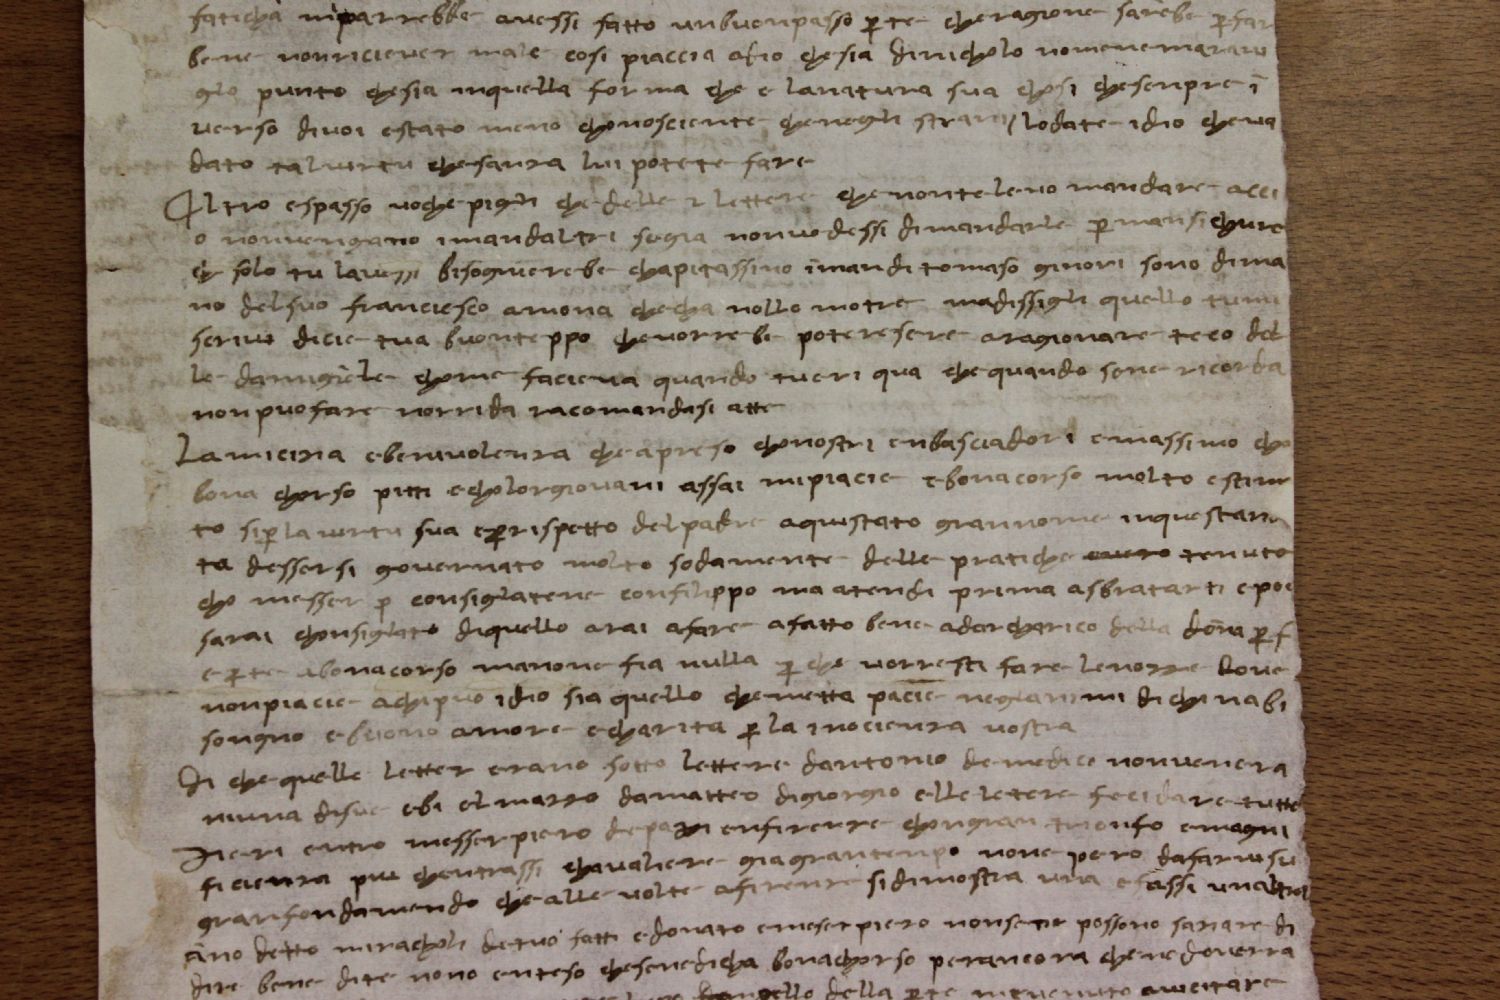 faticha miparrebbe avessi fatto unbuonpasso per te cheragione sarebe per far
bene nonriciever male cosi piaccia adio chesia dinicholo nomenemaravi
glo punto chesia inquella forma che e lanatura sua chosi chesenpre i
verso divoi estato meno chonosciente chenegli strani lodate idio cheva
dato talvertu chesanza lui potete fare
Altro espasso voche pigli che delle 2 lettere che nontelevo mandare acci
o nonvengano imandaltri segia nonvedessi dimandarle per mansichure
che solo tu lavessi bisognerebe chapitassino imandi tomaso ginori sono dima
no delsuo franciesco amona checha nollo motre madissigli quello tumi
scrivi dicie tua buonteppo chevorrebe poteresere aragionare teco del
le damigiele chome facieva quando tueri qua chequando sene ricorda
nonpuofare norrida racomandasi atte
Lamicizia ebenivolenza che apreso chonostri enbasciadori emassimo cho
bona chorso pitti echolorgiovani assai mipiacie ebonacorso molto estima
to siper lavertu sua eperrispetto delpadre aquistato grannome inquestan
ta dessersi governato molto sodamente delle pratiche tenuto
cho messer per consiglatene confilippo ma atendi prima asbratarti epoi
sarai chonsiglato diquello arai afare afatto bene adarcharico della dona per f
e perte abonacorso manone fia nulla per che vorresti fare lenozze dove
nonpiacie achipuo idio sia quello chemetta pacie neglanimi dichinabi
songno ebuono amore echarita per la inocienza vostra
Di chequelle letter erano sotto lettere dantonio demedici nonvenera
niuna disue ebi elmazzo damatteo digiorgio elle letere feci dare tutte
Ieri entro messerpiero depazi enfirenze chongran trionfo emagni
ficienza piu chentrassi chavaliere giagrantenpo none pero dafarvisu
granfondamendo chealle volte afirenze sidimostra una efassi unaltra
ano detto mirachholi detuo fatti edonato emeserpiero nonsene possono saziare di
dire bene dite nono enteso chesenedicha bonachorso perancora chenedoverra